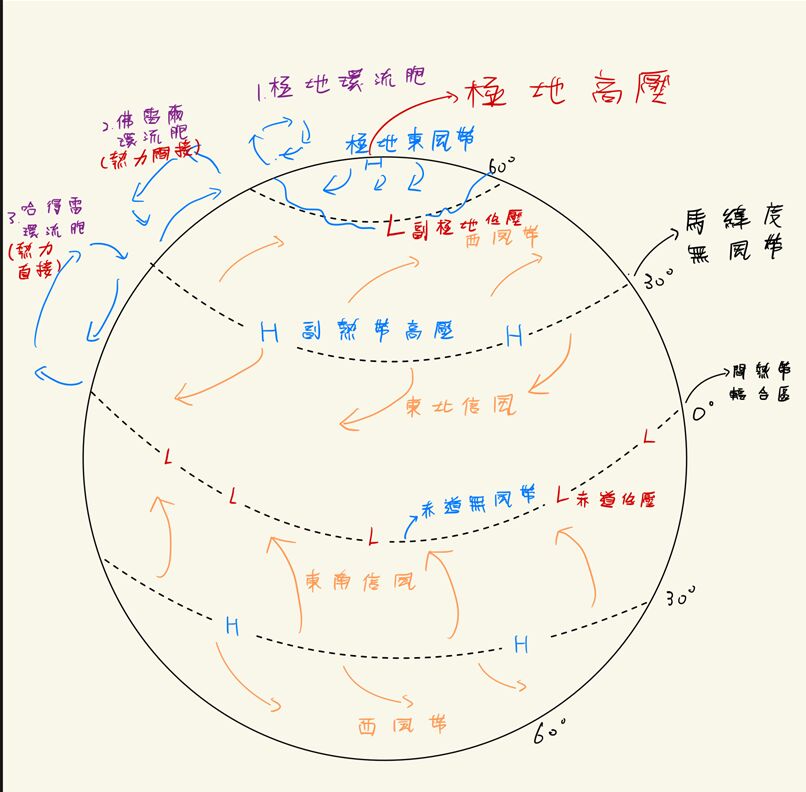 1.極地環流胞
極地高壓
2.佛雷爾
環流胞
(熱力間接)
極地東風帶
H
60°
3.哈得雷
環流胞
(熱力
直接)
L副極地低壓
西風帶
馬緯度
無風帶
30°
H 副熱帶高壓 H
間熱帶
輻合區
0°
東北信風
L
L
L
赤道無風帶
L 赤道低壓
L
東南信風
30°
H
H
西風帶
60°